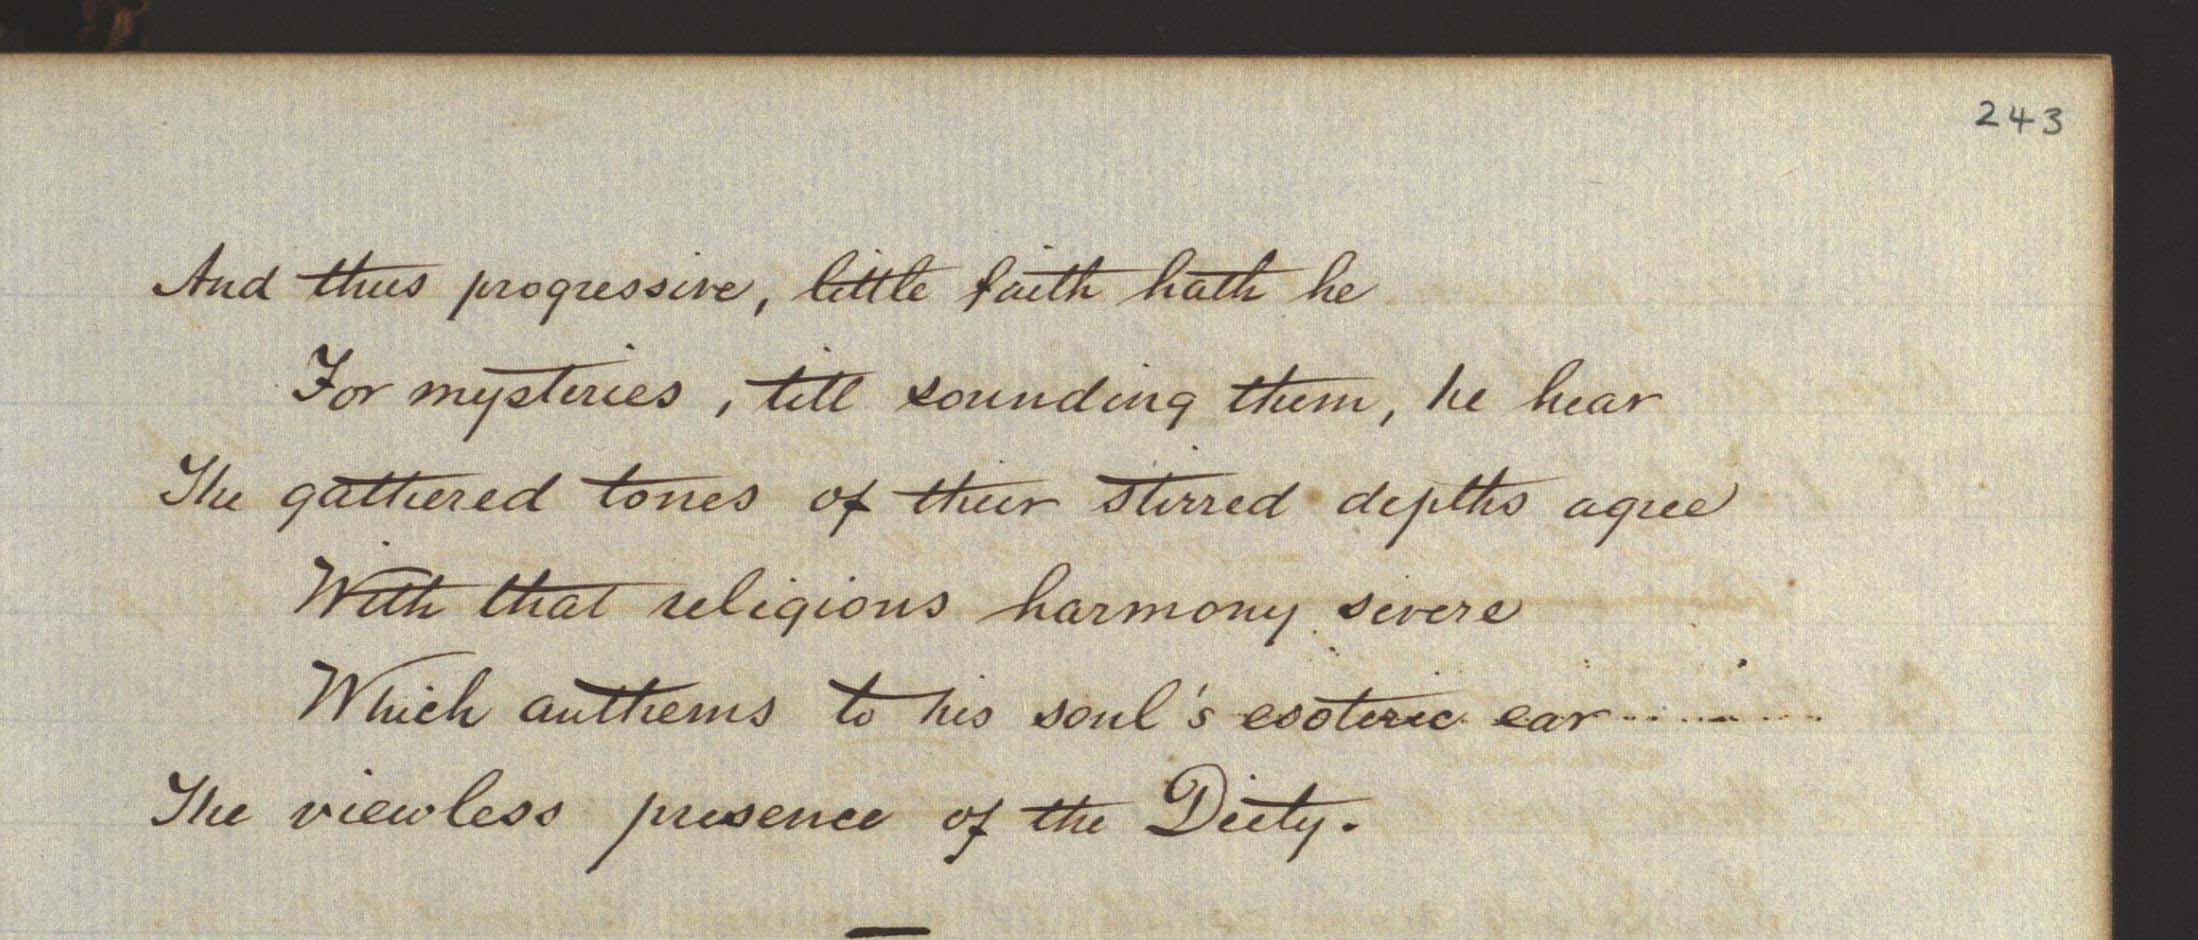 243
And thus progressive, little faith hath he
For mysteries, till sounding them, he hear
The gathered tones of their stirred depths agree
With that religious harmony severe
Which anthems to his soul's esoteric ear..........
The viewless presence of the Diety.